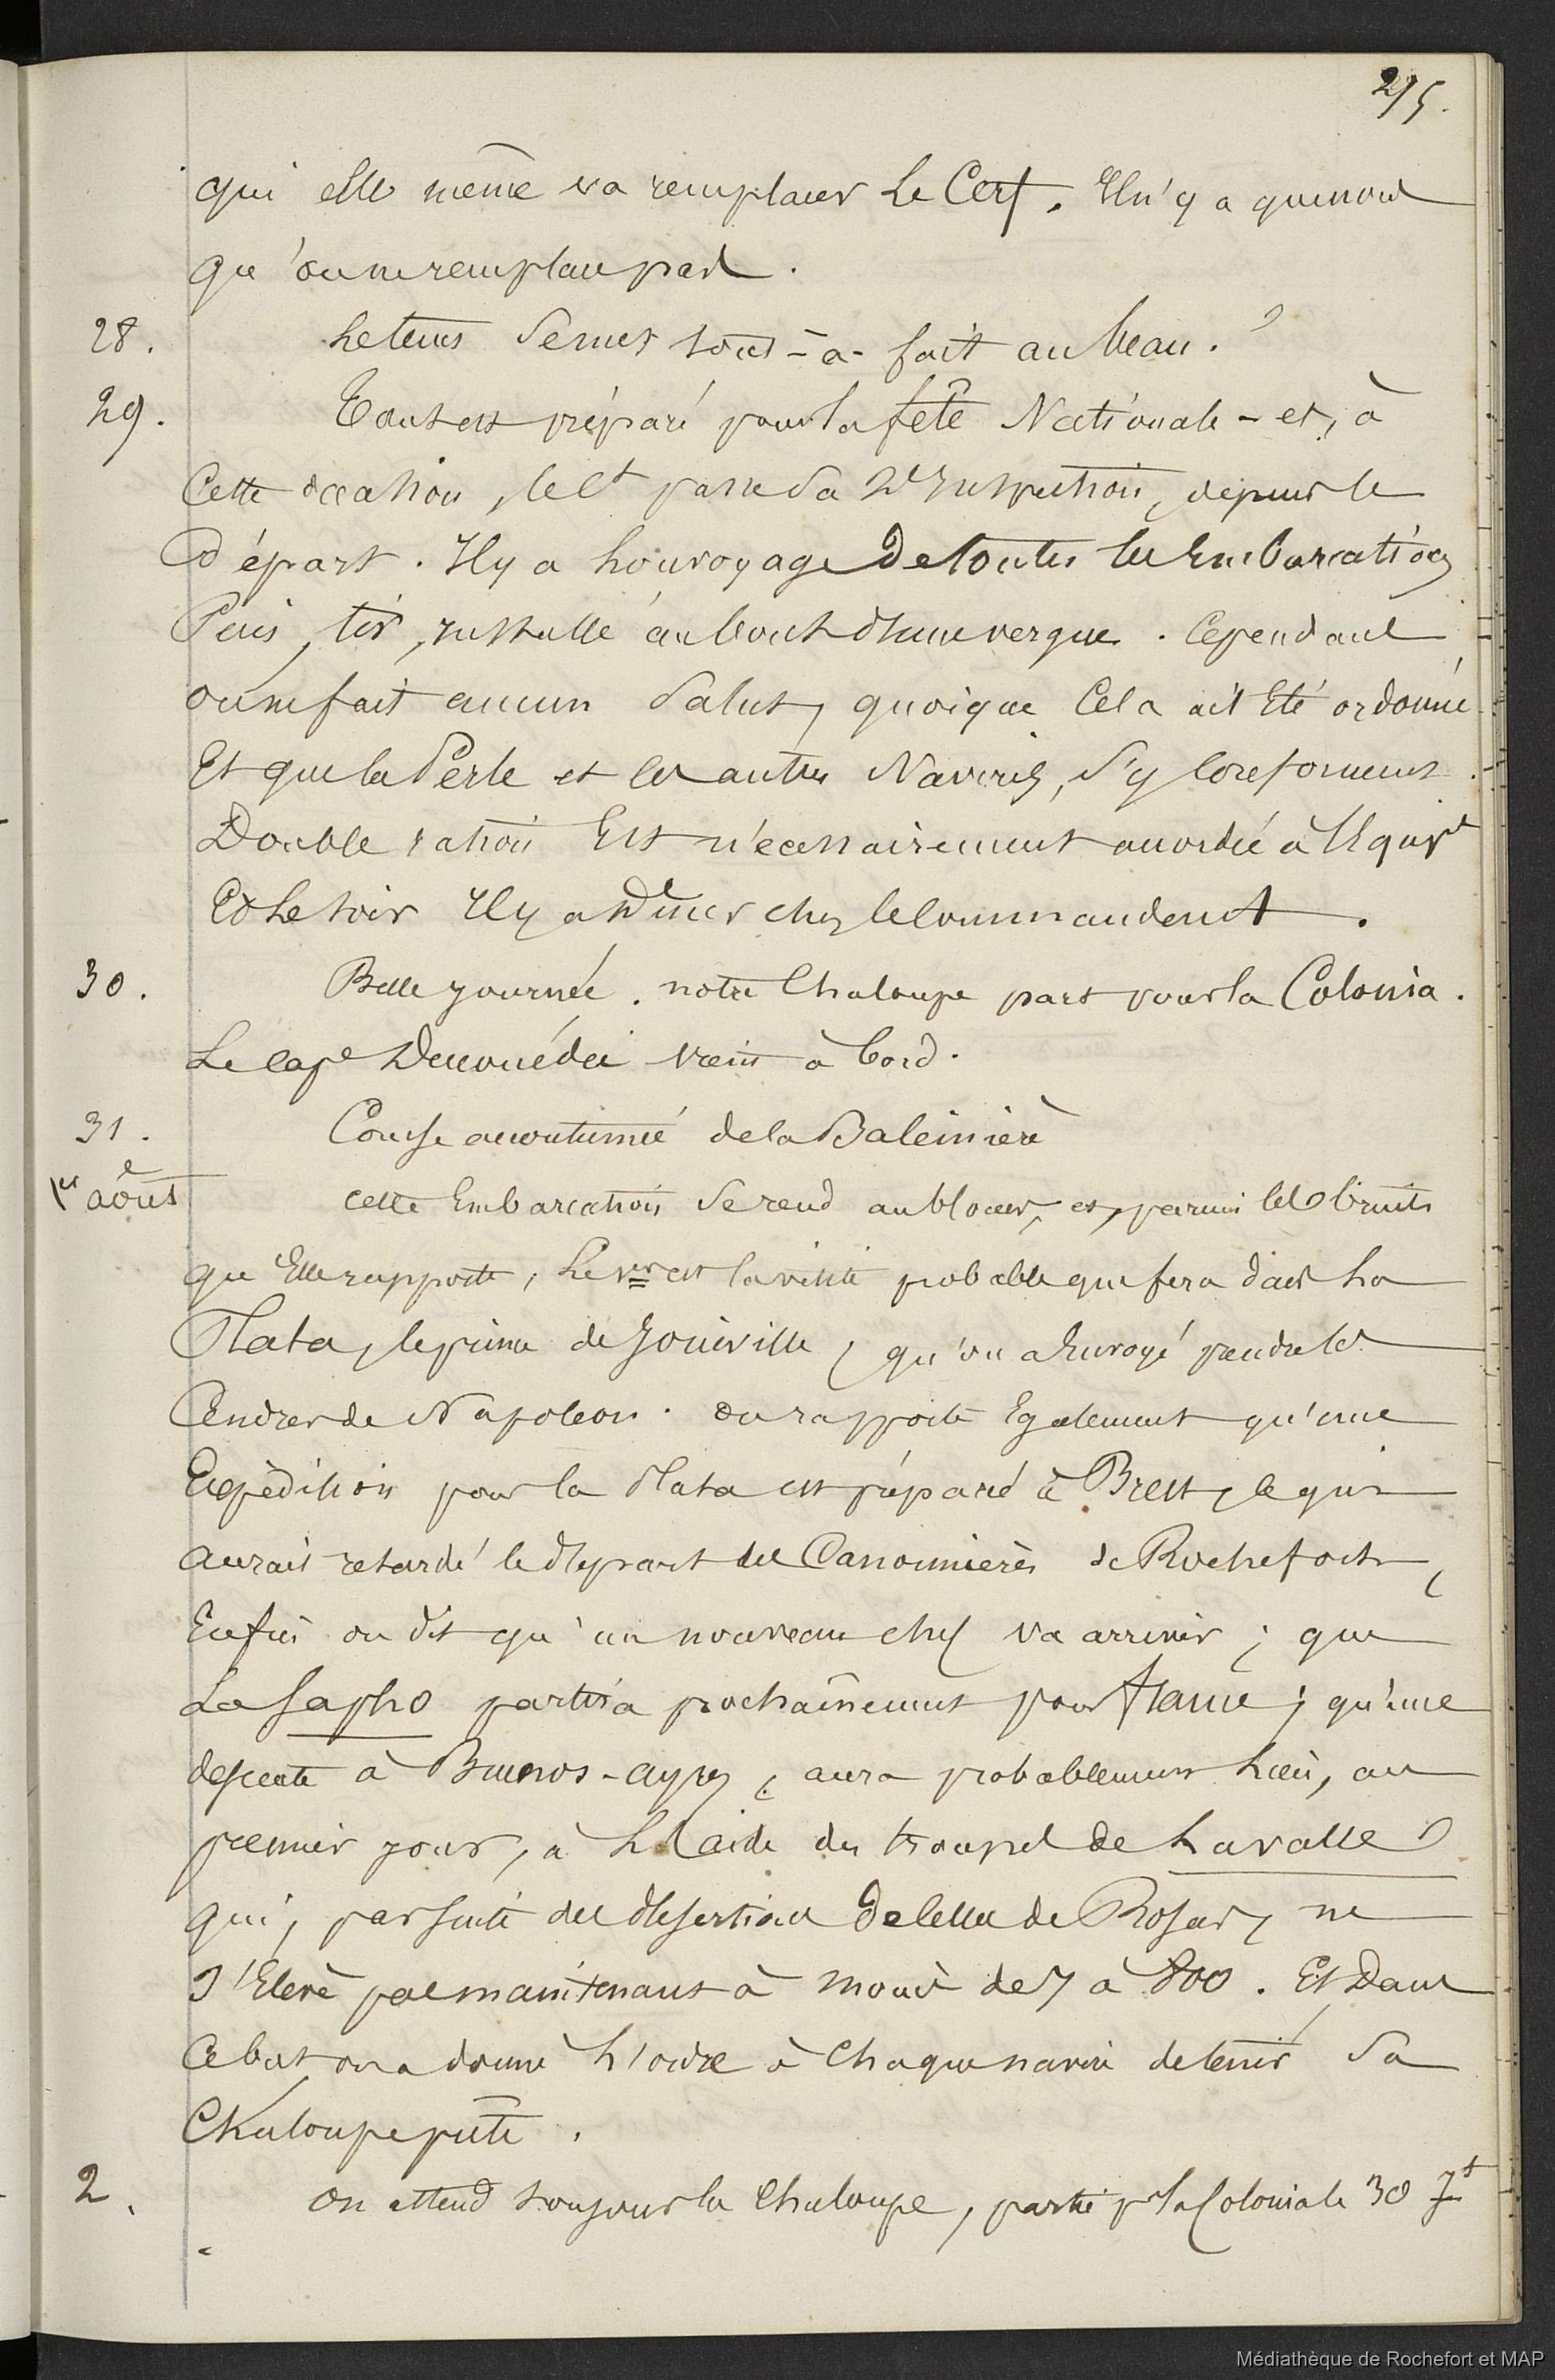 215.
qui elle même va remplacer Le Cerf. Il n'y a que nous
qu'on ne remplace pas.
28. Le tems se met tout-à-fait au beau.
29. Tout est préparé pour la fête Nationale - et, à
Cette occasion, le Ct passe sa 2e Inspection, depuis le
Départ. Il y a louvoyage de toutes les Embarcations
Puis, tir, installé au bout d'une vergue. Cependant
on ne fait aucun salut, quoique Cela ait Eté ordonné
Et que la Perle et les autres Navires, s'y conforment.
Double ration Est nécessairement accordée à l'Equipe
Et Le soir Il y a Diner chez le Commandant.
30. Belle journée. notre Chaloupe part pour la Colonia.
Le cape Ducouédic vient à bord.
31. Course accoutumée de la Baleinière
1er août cette Embarcation se rend au blocus, et, parmi les bruits
qu'Elle rapporte, Le 1er est la visite probable que fera dans La
Plata, le prince de Joinville, qu'on a Envoyé prendre les
Cendres de Napoléon. on rapporte Egalement qu'une
Expédition pour la Plata est préparée à Brest, ce qui
aurait retardé le départ des Canonnières de Rochefort,
Enfin on dit qu'un nouveau chef va arriver; que
La Sapho partira prochainement pour france; qu'une
descente à Buenos-ayres, aura probablement Lieu, au
premier jour, à L'aide des troupes de Lavalle
qui, par suite des désertions de celles de Rosas, ne
s'Elève pas maintenant à moins de 7 à 800. Et Dans
Ce but on a donné L'ordre à Chaque navire de tenir sa
Chaloupe prête.
2. On attend toujours la Chaloupe, partie pr la Colonia le 30 Jt
Médiathèque de Rochefort et MAP